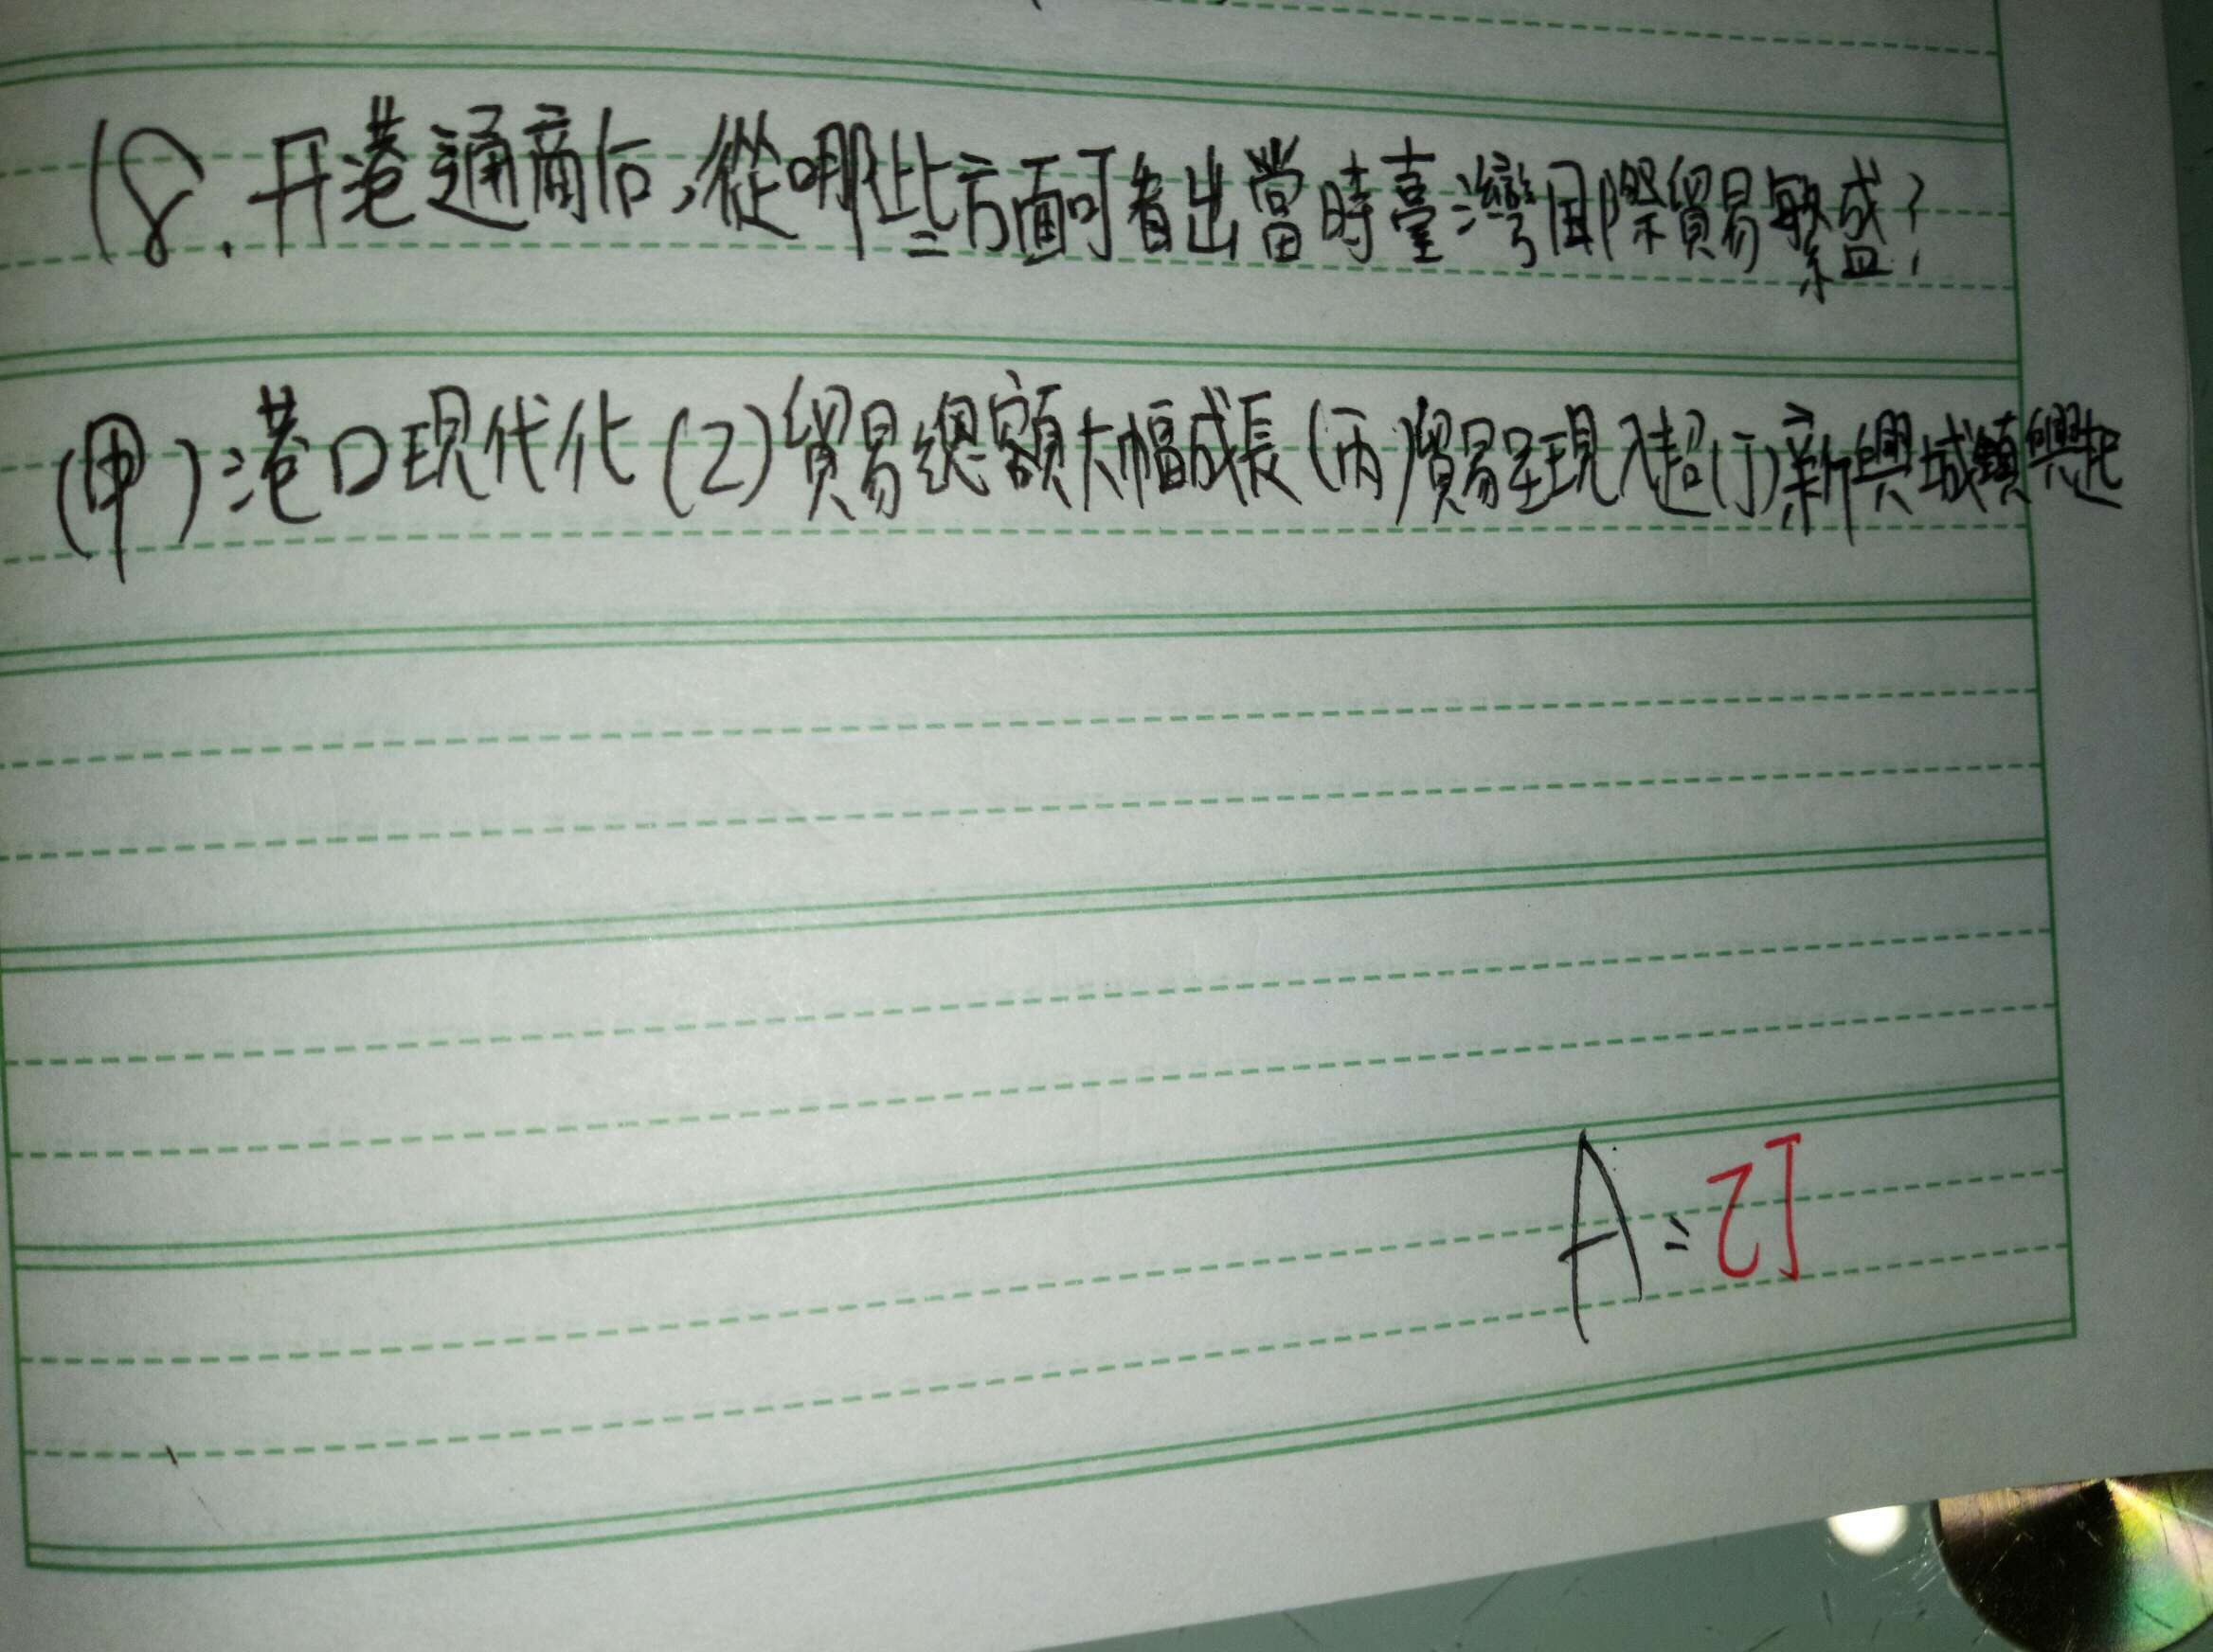 18.开港通商后,從哪些方面可看出當時臺灣国際貿易繁盛?
(甲)港口現代化(乙)貿易總額大幅成長(丙)貿易呈現入超(丁)新興城鎮興起
A=乙丁